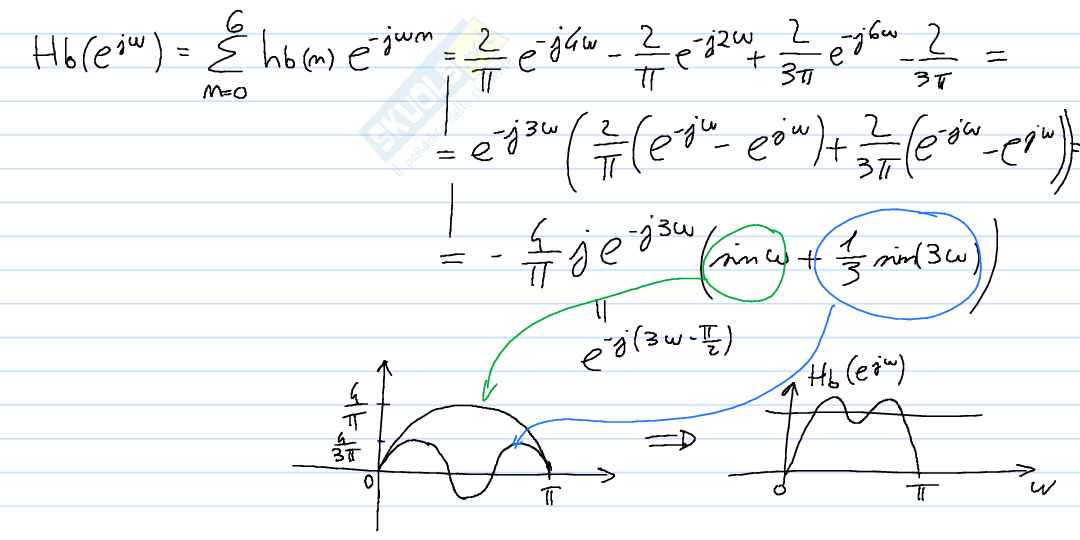 Hb(e^jω) = Σ_{n=0}^{6} hb(n) e^-jωn = 2/π e^-j4ω - 2/π e^-j2ω + 2/3π e^-j6ω - 2/3π =
= e^-j3ω (2/π (e^-jω - e^jω) + 2/3π (e^-jω - e^jω)) =
= - 4/π j e^-j3ω (sin ω + 1/3 sin(3ω))
e^-j(3ω - π/2)
Hb(e^jω)
4/π
4/3π
0 π
0 π ω
SKUOLA